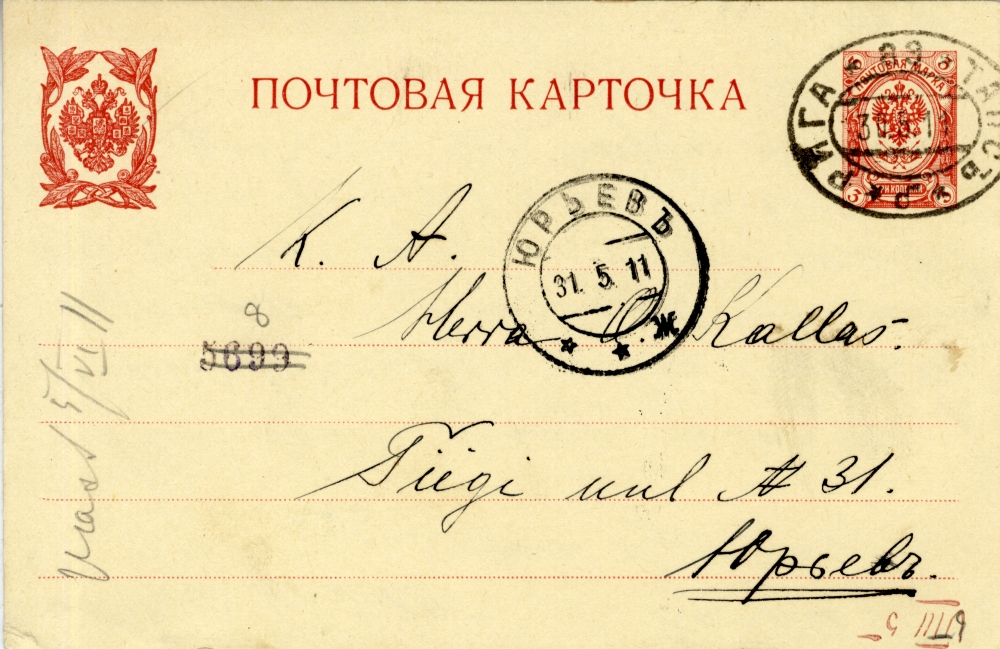 ПОЧТОВАЯ КАРТОЧКА
ПОЧТОВАЯ МАРКА
3 3
3 3
ТРИ КОПЕЙКИ
РИГА
ЮРЬЕВЪ
31. 5. 11
Ж
K. A.
Herra O. Kallas.
8
5699
Tiigi uul № 31.
Юрьевъ.
Vast 5/VI 11